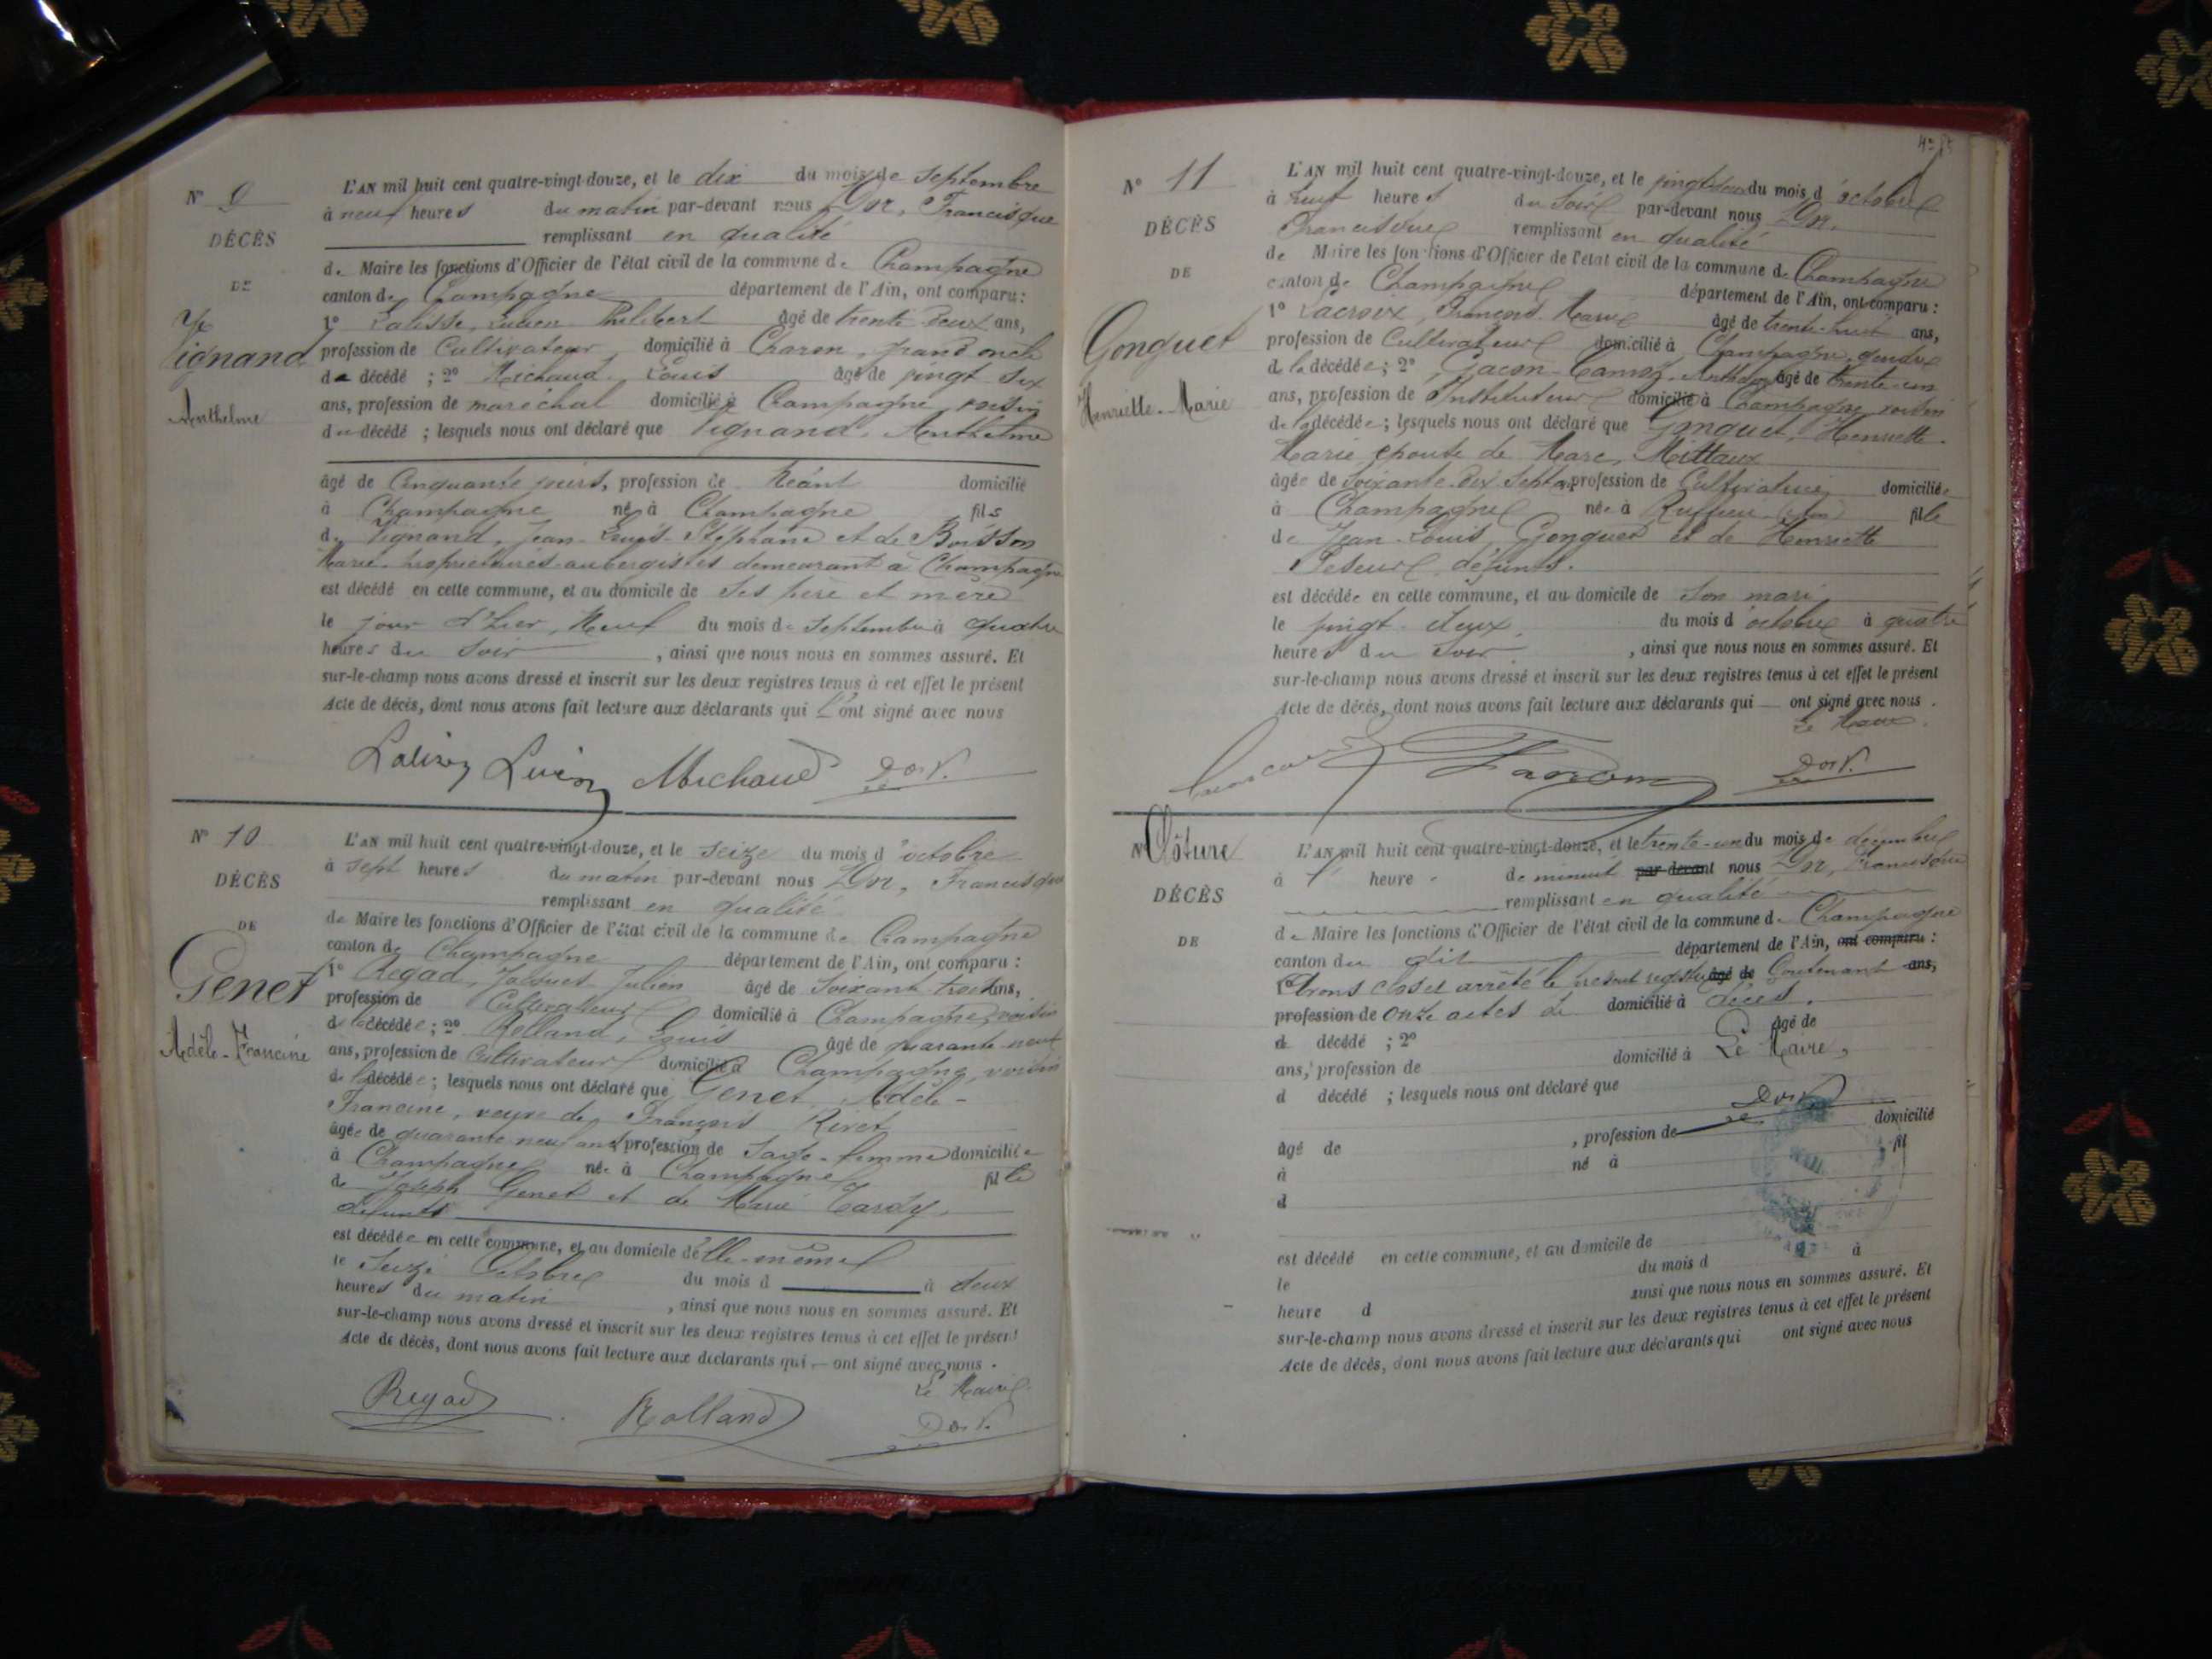 N° 9
DÉCÈS
DE
Vignand
Anthelme
L'AN mil huit cent quatre-vingt-douze, et le dix du mois de Septembre
à neuf heures du matin par-devant nous Dor, Francisque
remplissant en qualité
de Maire les fonctions d'Officier de l'état civil de la commune de Champagne
canton de Champagne département de l'Ain, ont comparu :
1° Lalisse, Lucien Philibert âgé de trente deux ans,
profession de Cultivateur domicilié à Charon, grand oncle
du décédé ; 2° Michaud Louis âgé de vingt six
ans, profession de maréchal domicilié à Champagne voisin
du décédé ; lesquels nous ont déclaré que Vignand, Anthelme
âgé de Cinquante jours, profession de Néant domicilié
à Champagne né à Champagne fils
de Vignand, Jean-Louis-Stéphane et de Boisson
Marie, propriétaires-aubergistes demeurant à Champagne
est décédé en cette commune, et au domicile de ses père et mère
le jour d'hier, Neuf du mois de Septembre à quatre
heures du Soir , ainsi que nous nous en sommes assuré. Et
sur-le-champ nous avons dressé et inscrit sur les deux registres tenus à cet effet le présent
Acte de décès, dont nous avons fait lecture aux déclarants qui l'ont signé avec nous
Michaud Dor F.
N° 10
DÉCÈS
DE
Genet
Adèle-Francine
L'AN mil huit cent quatre-vingt-douze, et le Seize du mois d'octobre
à sept heures du matin par-devant nous Dor, Francisque
remplissant en qualité
de Maire les fonctions d'Officier de l'état civil de la commune de Champagne
canton de Champagne département de l'Ain, ont comparu :
1° Regad, Jacques Julien âgé de Soixante-trois ans,
profession de Cultivateur domicilié à Champagne, voisin
de la décédée ; 2° Rolland, Louis âgé de quarante-neuf
ans, profession de Cultivateur domicilié à Champagne, voisin
de la décédée ; lesquels nous ont déclaré que Genet, Adèle-
Francine, veuve de François Rivet
âgée de quarante neuf ans profession de Sage-femme domiciliée
à Champagne née à Champagne fille
de Joseph Genet et de Marie Tardy,
défunts
est décédée en cette commune, et au domicile d'Elle-même
le Seize Octobre du mois d à deux
heures du matin , ainsi que nous nous en sommes assuré. Et
sur-le-champ nous avons dressé et inscrit sur les deux registres tenus à cet effet le présent
Acte de décès, dont nous avons fait lecture aux déclarants qui — ont signé avec nous.
Le Maire
Regad Rolland Dor F.
N° 11
DÉCÈS
DE
Gonguet
Henriette-Marie
L'AN mil huit cent quatre-vingt-douze, et le vingt-deux du mois d'octobre
à heures du Soir par-devant nous Dor,
Francisque remplissant en qualité
de Maire les fonctions d'Officier de l'état civil de la commune de Champagne
canton de Champagne département de l'Ain, ont comparu :
1° Lacroix, François Marie âgé de trente-huit ans,
profession de Cultivateur domicilié à Champagne, gendre
de la décédée ; 2° Gacon-Camoz, Anthelme âgé de trente-un
ans, profession de Instituteur domicilié à Champagne voisin
de la décédée ; lesquels nous ont déclaré que Gonguet, Henriette-
Marie épouse de Marc, Mittaux
âgée de Soixante-Dix Sept ans profession de Cultivatrice domiciliée
à Champagne née à Ruffieu (Ain) fille
de Jean-Louis Gonguet et de Henriette
défunts.
est décédée en cette commune, et au domicile de Son mari
le vingt-deux, du mois d'octobre à quatre
heures du Soir , ainsi que nous nous en sommes assuré. Et
sur-le-champ nous avons dressé et inscrit sur les deux registres tenus à cet effet le présent
Acte de décès, dont nous avons fait lecture aux déclarants qui — ont signé avec nous.
Le Maire.
Dor F.
N° Clôture
DÉCÈS
DE
L'AN mil huit cent quatre-vingt-douze, et le trente-un du mois de décembre
à heure de minuit par devant nous Dor, Francisque
remplissant en qualité
de Maire les fonctions d'Officier de l'état civil de la commune de Champagne
canton du dit département de l'Ain, ont comparu :
Avons clos et arrêté le présent registre âgé de Contenant ans,
profession de onze actes de domicilié à décès.
d décédé ; 2° âgé de
ans, profession de domicilié à Le Maire,
d décédé ; lesquels nous ont déclaré que
Dor F
âgé de , profession de domicilié
à né à fil
d
est décédé en cette commune, et au domicile de
le du mois d à
heure d ainsi que nous nous en sommes assuré. Et
sur-le-champ nous avons dressé et inscrit sur les deux registres tenus à cet effet le présent
Acte de décès, dont nous avons fait lecture aux déclarants qui ont signé avec nous